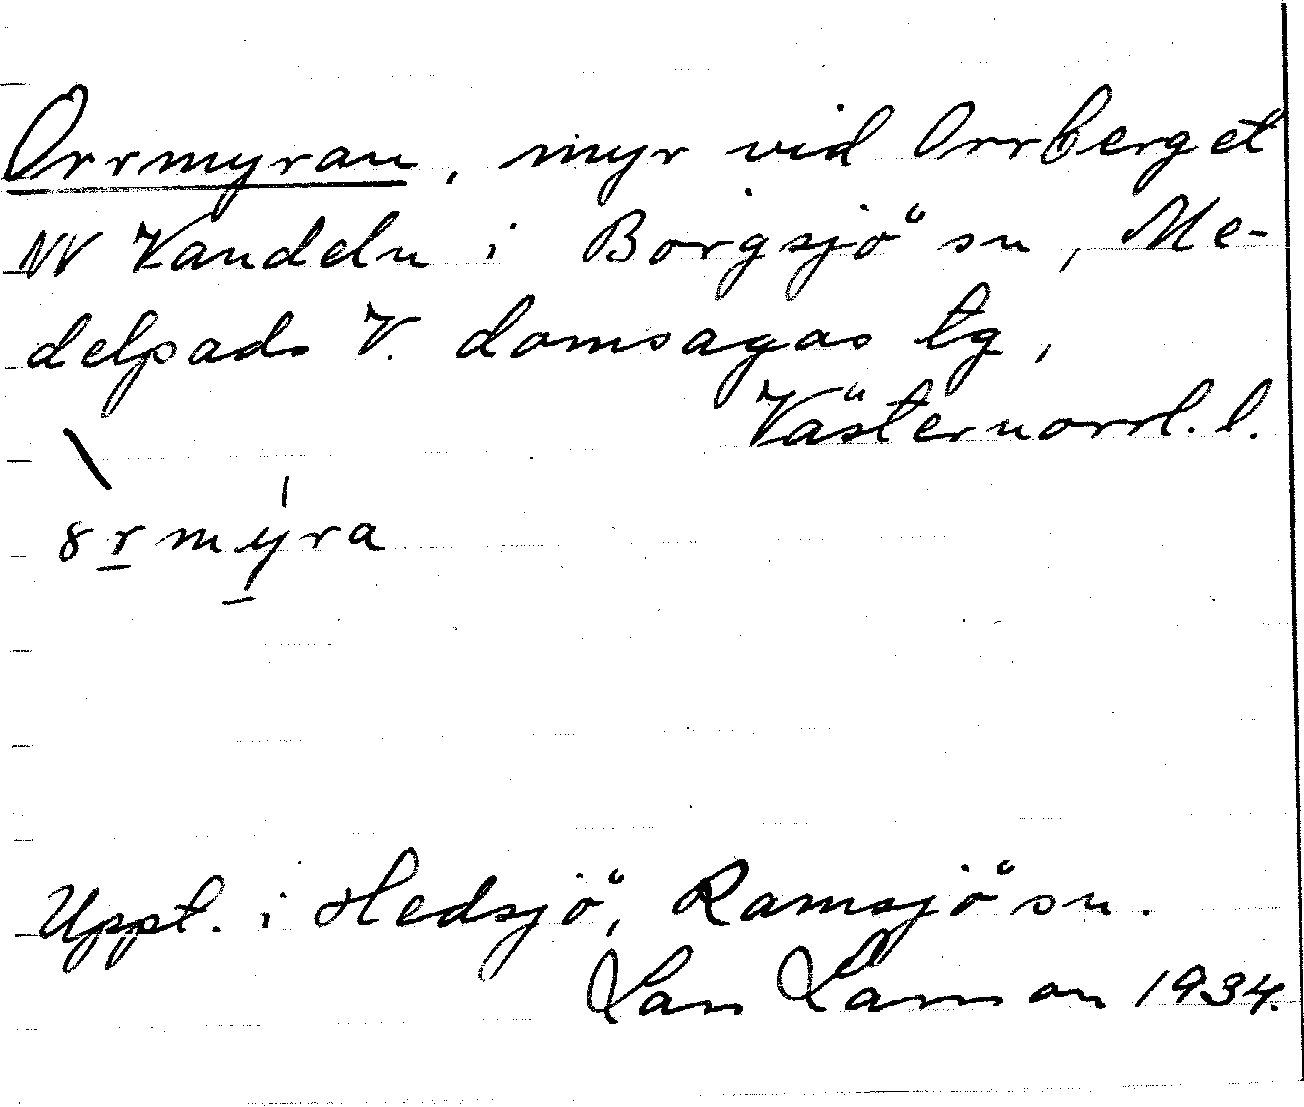 Orrmyran, myr vid Orrberget
NV Vandeln i Borgsjö sn, Me-
delpads V. domsagas tg,
Västernorrl. l.
\
8rmy̍ra
Uppt. i Hedsjö, Ramsjö sn.
Lars Larsson 1934.